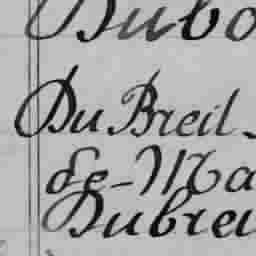 Dubo
Du Breil-
de-Ma
Dubreu